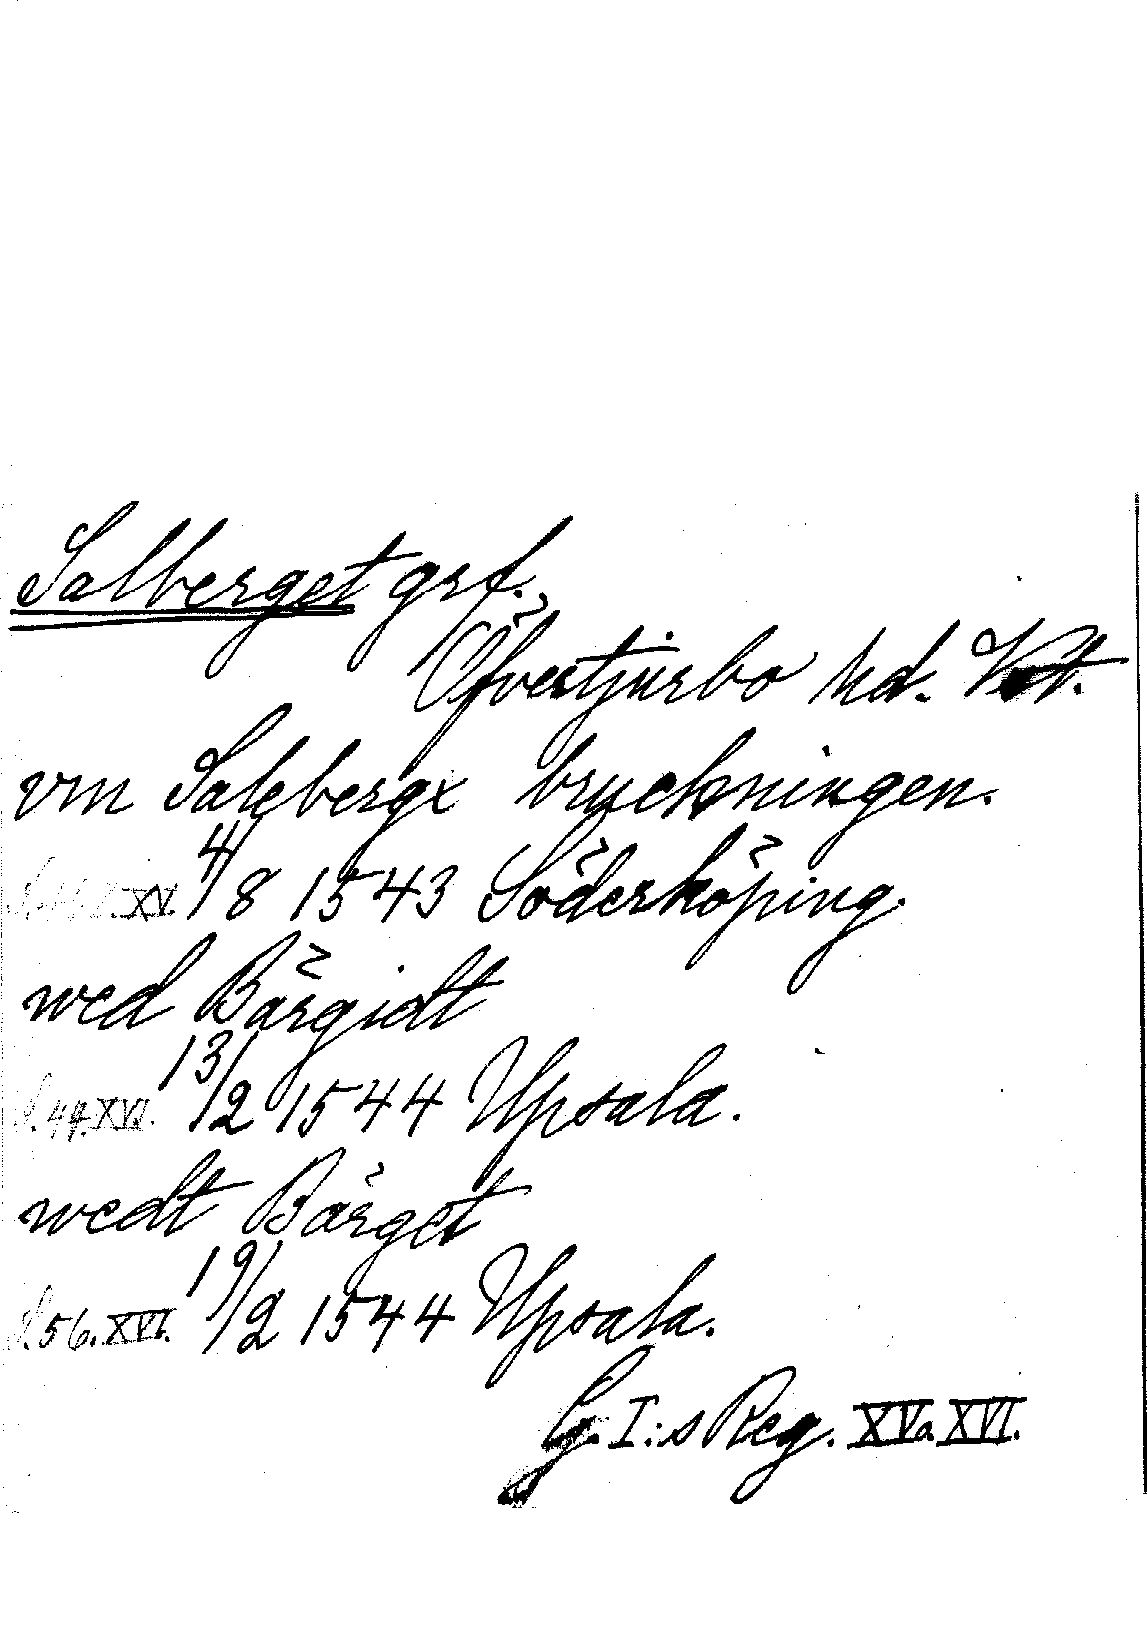 Salberget grf.
Öfvertjurbo hd. Vst.
vm Salebergx bruckningen.
XV. 4/8 1543 Söderköping.
wed Bärgidt
S. 44. XVI. 13/2 1544 Upsala.
wedt Bärget
S. 56. XVI. 19/2 1544 Upsala.
G. I:s Reg. XV. XVI.